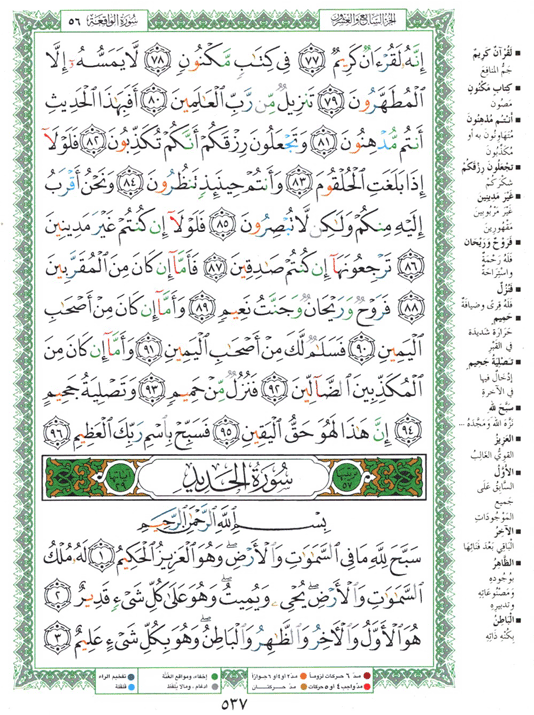 سُورَةُ الوَاقِعَة ٥٦
الجُزْءُ السَّابِعُ وَالعِشْرُونَ
إِنَّهُۥ لَقُرْءَانٌ كَرِيمٌ ٧٧ فِى كِتَٰبٍ مَّكْنُونٍ ٧٨ لَّا يَمَسُّهُۥٓ إِلَّا
ٱلْمُطَهَّرُونَ ٧٩ تَنزِيلٌ مِّن رَّبِّ ٱلْعَٰلَمِينَ ٨٠ أَفَبِهَٰذَا ٱلْحَدِيثِ
أَنتُم مُّدْهِنُونَ ٨١ وَتَجْعَلُونَ رِزْقَكُمْ أَنَّكُمْ تُكَذِّبُونَ ٨٢ فَلَوْلَآ
إِذَا بَلَغَتِ ٱلْحُلْقُومَ ٨٣ وَأَنتُمْ حِينَئِذٍ تَنظُرُونَ ٨٤ وَنَحْنُ أَقْرَبُ
إِلَيْهِ مِنكُمْ وَلَٰكِن لَّا تُبْصِرُونَ ٨٥ فَلَوْلَآ إِن كُنتُمْ غَيْرَ مَدِينِينَ
٨٦ تَرْجِعُونَهَآ إِن كُنتُمْ صَٰدِقِينَ ٨٧ فَأَمَّآ إِن كَانَ مِنَ ٱلْمُقَرَّبِينَ
٨٨ فَرَوْحٌ وَرَيْحَانٌ وَجَنَّتُ نَعِيمٍ ٨٩ وَأَمَّآ إِن كَانَ مِنْ أَصْحَٰبِ
ٱلْيَمِينِ ٩٠ فَسَلَٰمٌ لَّكَ مِنْ أَصْحَٰبِ ٱلْيَمِينِ ٩١ وَأَمَّآ إِن كَانَ مِنَ
ٱلْمُكَذِّبِينَ ٱلضَّآلِّينَ ٩٢ فَنُزُلٌ مِّنْ حَمِيمٍ ٩٣ وَتَصْلِيَةُ جَحِيمٍ
٩٤ إِنَّ هَٰذَا لَهُوَ حَقُّ ٱلْيَقِينِ ٩٥ فَسَبِّحْ بِٱسْمِ رَبِّكَ ٱلْعَظِيمِ ٩٦
سُورَةُ الحَدِيدِ
بِسْمِ ٱللَّهِ ٱلرَّحْمَٰنِ ٱلرَّحِيمِ
سَبَّحَ لِلَّهِ مَا فِى ٱلسَّمَٰوَٰتِ وَٱلْأَرْضِ ۖ وَهُوَ ٱلْعَزِيزُ ٱلْحَكِيمُ ١ لَهُۥ مُلْكُ
ٱلسَّمَٰوَٰتِ وَٱلْأَرْضِ ۖ يُحْىِۦ وَيُمِيتُ ۖ وَهُوَ عَلَىٰ كُلِّ شَىْءٍ قَدِيرٌ ٢
هُوَ ٱلْأَوَّلُ وَٱلْءَاخِرُ وَٱلظَّٰهِرُ وَٱلْبَاطِنُ ۖ وَهُوَ بِكُلِّ شَىْءٍ عَلِيمٌ ٣
لَقُرْآنٌ كَرِيمٌ
جَمُّ المنافِعِ
كتابٍ مَكْنُونٍ
مَصُونٍ
أنتُم مُدْهِنُونَ
مُتَهاوِنُونَ به أو
مُكَذِّبُونَ
تجْعَلُونَ رِزْقَكُمْ
شكْرَكُمْ
غَيْرَ مَدِينِينَ
غَيْرَ مَرْبُوبِينَ
مَقْهُورِينَ
فَرَوْحٌ وَرَيْحَان
فَلَهُ رَحْمَةٌ
واسْتِرَاحَةٌ
فَنُزُلٌ
فَلَهُ قِرًى وَضيافَةٌ
حَمِيمٍ
حَرَارَةٍ شديدة
في القَبْرِ
تَصْلِيَةُ جَحِيمٍ
إدْخَالٌ فيها
في الآخرة
سَبَّحَ لله
نَزَّهَ اللهَ وَمَجَّدَهُ ...
العَزِيزُ
القَوِيُّ الغَالِبُ
الأَوَّلُ
السَّابِقُ عَلَى
جَمِيعِ
المَوْجُودَاتِ
الآخِرُ
الباقي بَعْدَ فَنَائِهَا
الظَّاهِرُ
بوُجُودِهِ
وَمَصْنُوعَاتِهِ
وتدبيرِهِ
البَاطِنُ
بِكُنْهِ ذَاتِهِ
مدّ ٦ حركات لزوماً
مدّ ٢ أو ٤ أو ٦ جوازاً
إخفاء، ومواقع الغُنَّة
تفخيم الراء
مدّ واجب ٤ أو ٥ حركات
مدّ حركتان
إدغام، وما لا يُلفَظ
قلقلة
٥٣٧